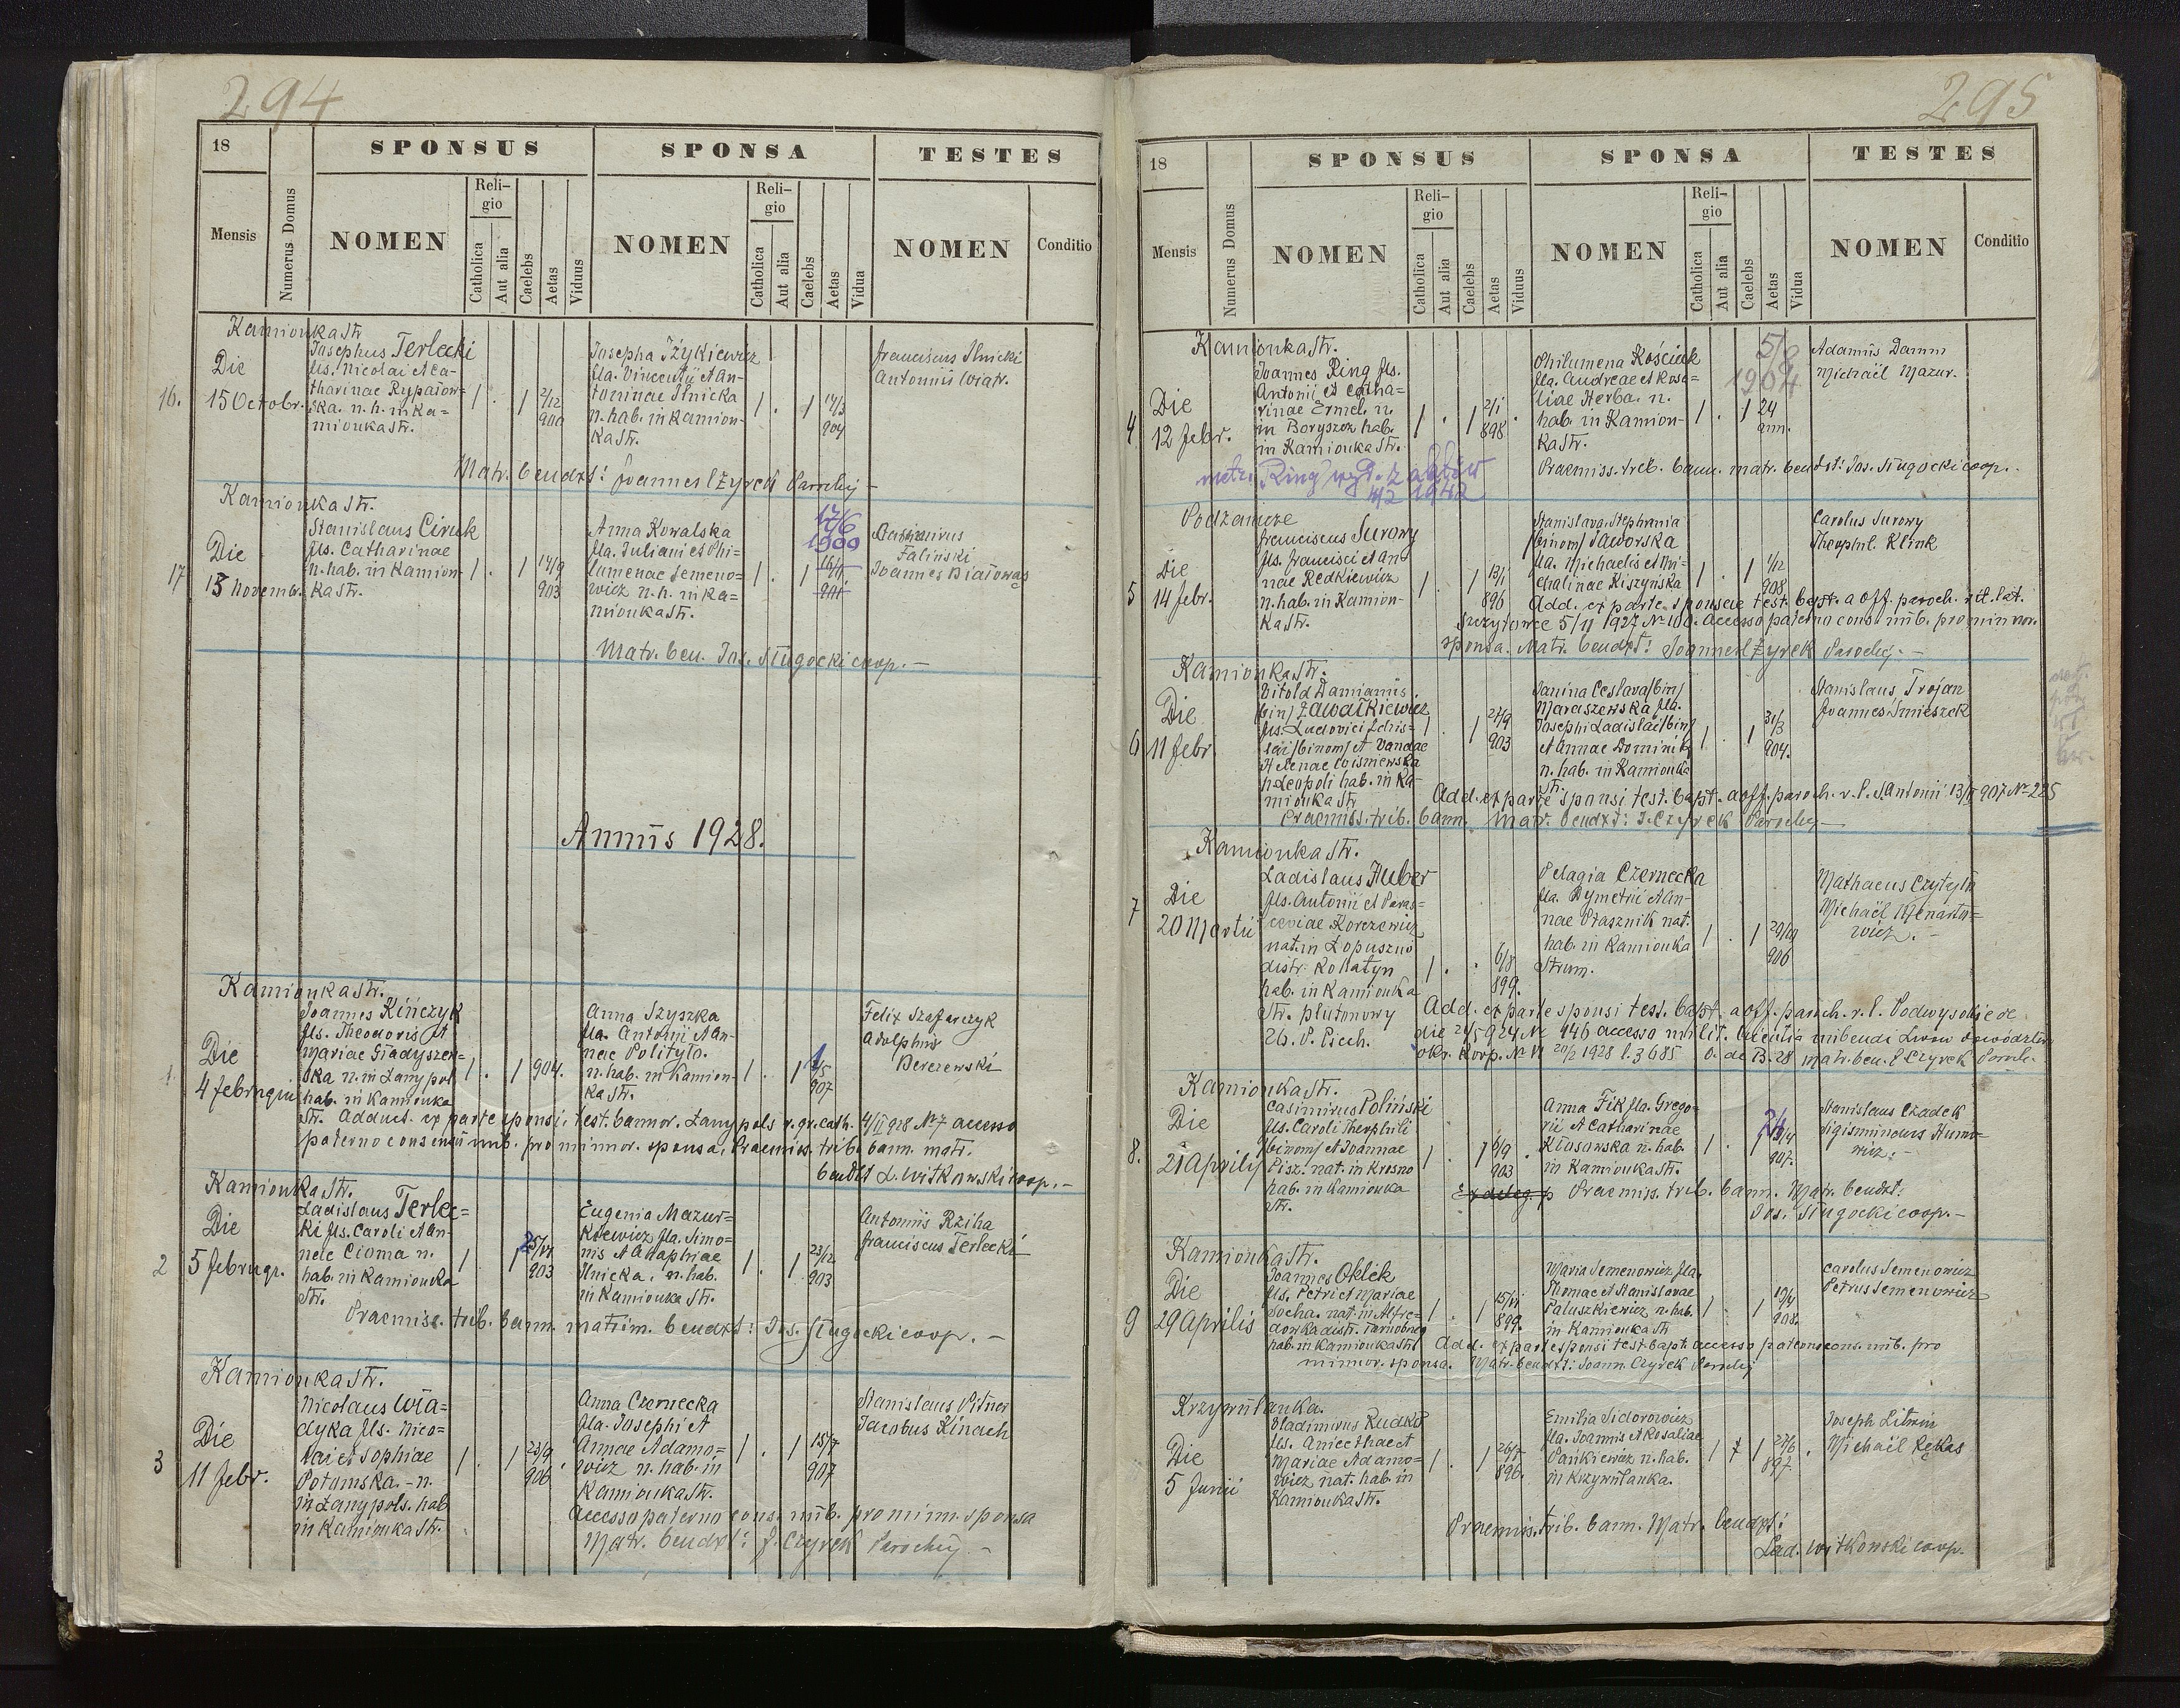 294
18
SPONSUS
SPONSA
TESTES
Mensis
Numerus Domus
NOMEN
Religio
Catholica
Aut alia
Caelebs
Aetas
Viduus
NOMEN
Religio
Catholica
Aut alia
Caelebs
Aetas
Vidua
NOMEN
Conditio
Kamionka Str.
16.
Die
15 Octobr.
Josephus Terlecki
fls. Nicolai et Ca-
tharinae Rypałow-
ska. n. h. in Ka-
mionka Str.
1 . 1 2/12
900
Josepha Iżykiewicz
fla. Vincentii et An-
toninae Ilnicka
n. hab. in Kamion-
ka Str.
1 . 1
904
Franciscus Ilnicki
Antonius Wiatr.
Matr. bendxt: Joannes Czyrek Parochus
Kamionka Str.
17
Die
13 Novembr.
Stanislaus Ciruk
fls. Catharinae
n. hab. in Kamion-
ka Str.
1 . 1 14/9
903
Anna Kowalska
fla. Juliani et Phi=
lumenae Semeno=
wicz n. h. in Ka=
mionka Str.
1 . 1
17/6
1900
Zaliński
Joannes Białowąs
Matr. ben. Jos. Sługocki coop. -
Annus 1928.
Kamionka Str.
1
Die
4 februarii
Joannes Kińczyk
fls. Theodoris et
Mariae Gładyszew-
ska n. in Łanypol
hab. in Kamionka
Str.
1 . 1 904.
Anna Szyszka
fla. Antonii et An-
nae Polityło.
n. hab. in Kamion-
ka Str.
1 . 1 1/5
907
Felix Szafarczyk
Adolphus
Berezewski
Adduct. ex parte sponsi, test. bannor. Łanypols r. gr. cath. 4/II 928 № 7 accesso
paterno consensu nub. pro minor. sponsa, Praemiss. trib. bann. matr.
bendxt L. Witkowski coop. -
Kamionka Str.
2
Die
5 februar.
Ladislaus Terlec=
ki fls. Caroli et An-
nae Cioma n.
hab. in Kamionka
Str.
1 . 1 25/VI
903
Eugenia Mazur=
kiewicz fla. Simo=
nis et Ahaphiae
Ilnicka. n. hab.
in Kamionka Str.
1 . 1 23/12
903
Antonius Rziha
Franciscus Terlecki
Praemiss. trib. bann. matrim. bendxt: Jos. Sługocki coop. -
Kamionka Str.
3
Die
11 febr.
Nicolaus Wła=
dyka fls. Nico=
lai et Sophiae
Potomska. - n.
in Łanypols. hab.
in Kamionka Str.
1 . 1 23/9
906
Anna Czernecka
fla. Josephi et
Annae Adamo=
wicz n. hab. in
Kamionka Str.
1 . 1 15/7
907
Stanislaus Pitner
Jacobus Kinach
Accesso paterno cons. nub. pro minn. sponsa
Matr. bendxt: J. Czyrek Parochus -
295
18
SPONSUS
SPONSA
TESTES
Mensis
Numerus Domus
NOMEN
Religio
Catholica
Aut alia
Caelebs
Aetas
Viduus
NOMEN
Religio
Catholica
Aut alia
Caelebs
Aetas
Vidua
NOMEN
Conditio
Kamionka Str.
4
Die
12 febr.
Joannes Ring fls.
Antonii et Catha=
rinae Ermel. n.
in Boryszcz hab.
in Kamionka Str.
1 . 1 2/1
898
Philumena Kościuk
fla. Andreae et Rosa=
liae Herba. n.
hab. in Kamion-
ka Str.
1 . 1 24
ann.
5/9
1904
Adamus Damm
Michaël Mazur.
Praemiss. trib. bann. matr. bendxt: Jos. Sługocki coop.
4/2 1942
Podzamcze
5
Die
14 febr.
Franciscus Surowy
fls. Francisci et An-
nae Redkiewicz
n. hab. in Kamion-
ka Str.
1 . 1 13/1
896
Stanislava Stephania
/binom/ Jaworska
fla. Michaelis et Mi-
chalinae Kiszyńska
1 . 1 1/12
908
Carolus Surowy
Theophil. Klink
Add. ex parte sponsae test. bapt. a off. paroch. rit. lat.
5/11 1927 № 100. Accesso paterno cons. nub. pro min nor.
sponsa. Matr. bendxt: Joannes Czyrek Parochus. -
Kamionka Str.
6
Die
11 febr.
Vitold Damianus
/bin/ Zawałkiewicz
fls. Ludovici Zdzis=
lai /binom/ et Vandae
Helenae Wiśniewska
n. Leopoli hab. in Ka-
mionka Str.
1 . 1 27/9
903
Janina Ceslava /bin/
Maraszewska fla.
Josephi Ladislai /bin/
et Annae Dominik
n. hab. in Kamionka
Str.
1 . 1 31/3
904.
Stanislaus Trojan
Joannes Śmieszek
Add. ex parte sponsi test. bapt. a off. paroch. r. l. S. Antonii 13/II 907 № 225
Praemiss. trib. bann. Matr. bendxt: J. Czyrek Parochus
Kamionka Str.
7
Die
20 Martii
Ladislaus Huber
fls. Antonii et Paras=
ceviae Korczewicz
nat. in Łopuszno
distr. Rohatyn
hab. in Kamionka
Str. plutonowy
26. P. Piech.
1 . . 6/8
899.
Pelagia Czernecka
fla. Dymetrii et An-
nae Ptasznik nat.
hab. in Kamionka
Strum.
1 . 1
906
Mathaeus Czytyło
Michaël
wicz. -
Add. ex parte sponsi test. bapt. a off. paroch. r. l. Podwysokie de
die 24/5 924 № 146 accesso milit. licentia nubendi Lwów dowództwo
okr. Korp. № VI 20/2 1928 l. 3685 matr. ben. J. Czyrek Paroch.
Kamionka Str.
8.
Die
21 Aprilis
Casimirus Poliński
fls. Caroli Theophili
binom/ et Joannae
Pisz. nat. in Krosno
hab. in Kamionka
Str.
1 . 1 6/9
903
Anna Fik fla. Grego-
rii et Catharinae
Kłosowska n. hab.
in Kamionka Str.
1 . 1
907.
Stanislaus Czadek
Sigismundus Humo=
wicz. -
Praemiss. trib. bann. Matr. bendxt:
Jos. Sługocki coop. -
Kamionka Str.
9
Die
29 Aprilis
Joannes Oblek
fls. Petri et Mariae
Socha. nat. in Alfre-
dowka distr. Tarnobrzeg
hab. in Kamionka Str.
1 . 1 15/VI
899.
Maria Semenowicz fla.
Thomae et Stanislavae
Paluszkiewicz n. hab.
in Kamionka Str.
1 . 1
908.
Carolus Semenowicz
Petrus Semenowicz
Add. ex parte sponsi test. bapt. accesso paterno cons. nub. pro
minnor. sponsa. Matr. bendxt: Joann. Czyrek Parochus
Krzywulanka.
Die
5 Junii
Vladimirus Rudko
fls. Anicethae et
Mariae Adamo=
wicz nat. hab. in
Kamionka Str.
1 . 1 26/7
896.
Emilia Sidorowicz
fla. Joannis et Rosaliae
Pańkiewicz n. hab.
in Krzywulanka.
1 1 27/6
897.
Joseph Litwin
Michaël Rękas
Praemiss. trib. bann. Matr. bendxt:
Lad. Witkowski coop.